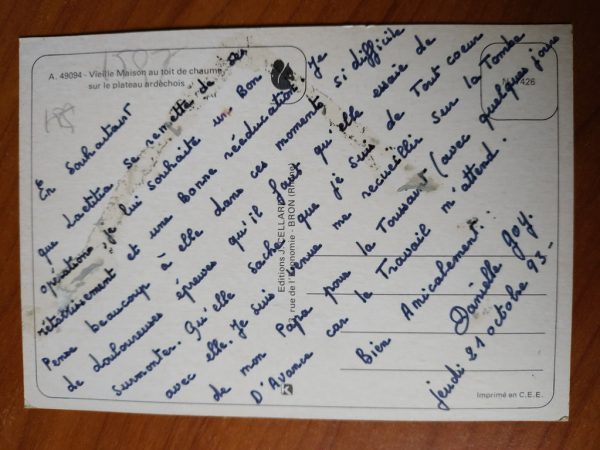 A. 49094 - Vieille Maison au toit de chaume
sur le plateau ardéchois
En Souhaitant
que Laetitia se remette de ses
opérations, je lui souhaite un Bon
rétablissement et une Bonne rééducation. Je
Pense beaucoup à elle dans ces moments si difficile
de douloureuses épreuves qu'il faut qu'elle essaie de
surmonter. Qu'elle sache que je suis de Tout coeur
avec elle. Je suis venue me recueillir sur la Tombe
de mon Papa pour la Toussaint (avec quelques jours
D'Avance car le Travail m'attend.
Bien Amicalement.
Danielle Goy.
Jeudi 21 octobre 93-
Editions
rue de l'
BRON (Rhône)
426
K
Imprimé en C.E.E.